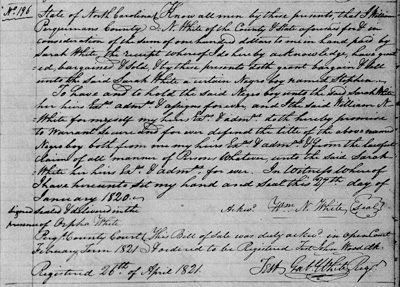 No. 196 State of North Carolina Know all men by these presents, that I William
Perquimans County N. White of the County & State aforesaid for & in
consideration of the sum of one hundred dollars to me in hand paid by
Sarah White the receipt whereof I do hereby acknowledge, have grant
ed, bargained & sold, & by these presents doth grant bargain & sell
unto the said Sarah White a certain Negro boy named Stephen
To have and to hold the said Negro boy unto the said Sarah White
her heirs Exs. adms. & assigns forever and I the said William N.
White for myself my heirs Exs. & adms. doth hereby promise
to Warrant Secure and for ever defend the title of the above named
Negro boy both from me my heirs Exs & adms & from the lawful
claim of all manner of Persons Whatever, unto the said Sarah
White her heirs Exs. & Adms. for ever. In Witness Whereof
I have hereunto set my hand and seal this 27th day of
January 1820.
Signed Sealed & delivered in the Ackd. Wm. N. White Seal
presence of Orpha White
Perqs. County Court This Bill of Sale was duly ackd. in open Court
February Term 1821 & ordered to be Registered Test John Wood Clk
Registered 26th of April 1821. Test Gabl White Regr.